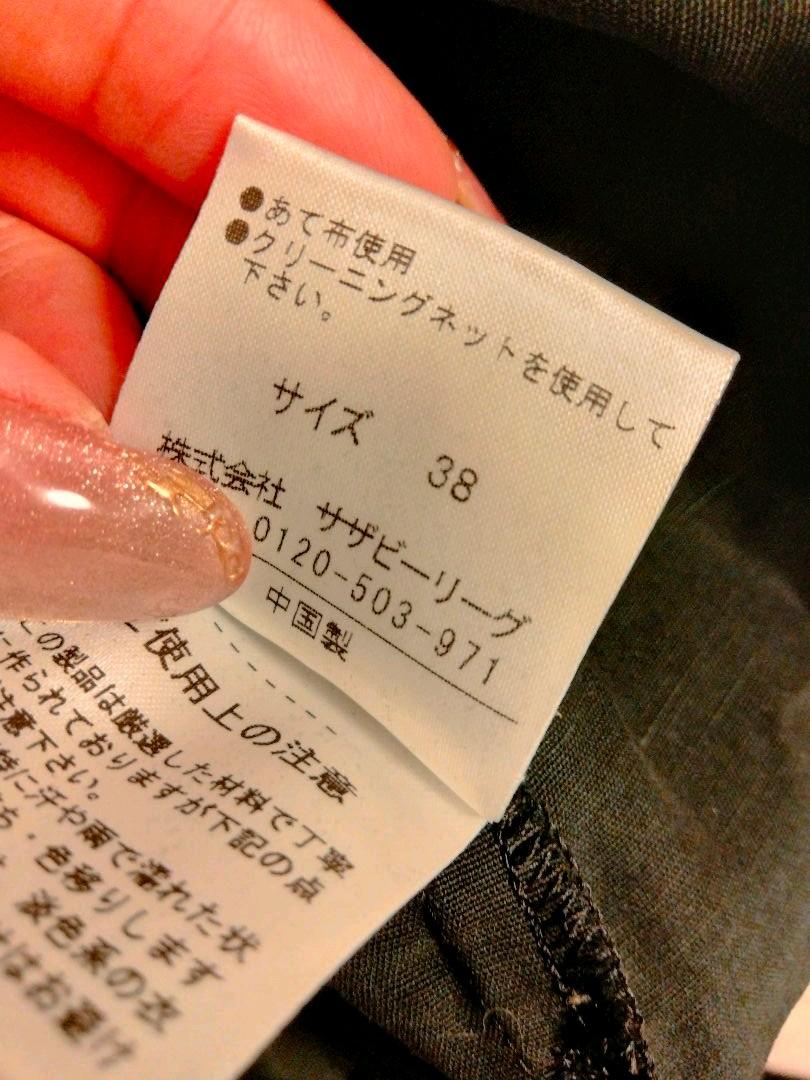 ●あて布使用
●クリーニングネットを使用して
下さい。
サイズ 38
株式会社 サザビーリーグ
0120-503-971
中国製
使用上の注意
の製品は厳選した材料で丁寧
に作られておりますが下記の点
注意下さい。
特に汗や雨で濡れた状
色移りします
淡色系の衣
はお避け